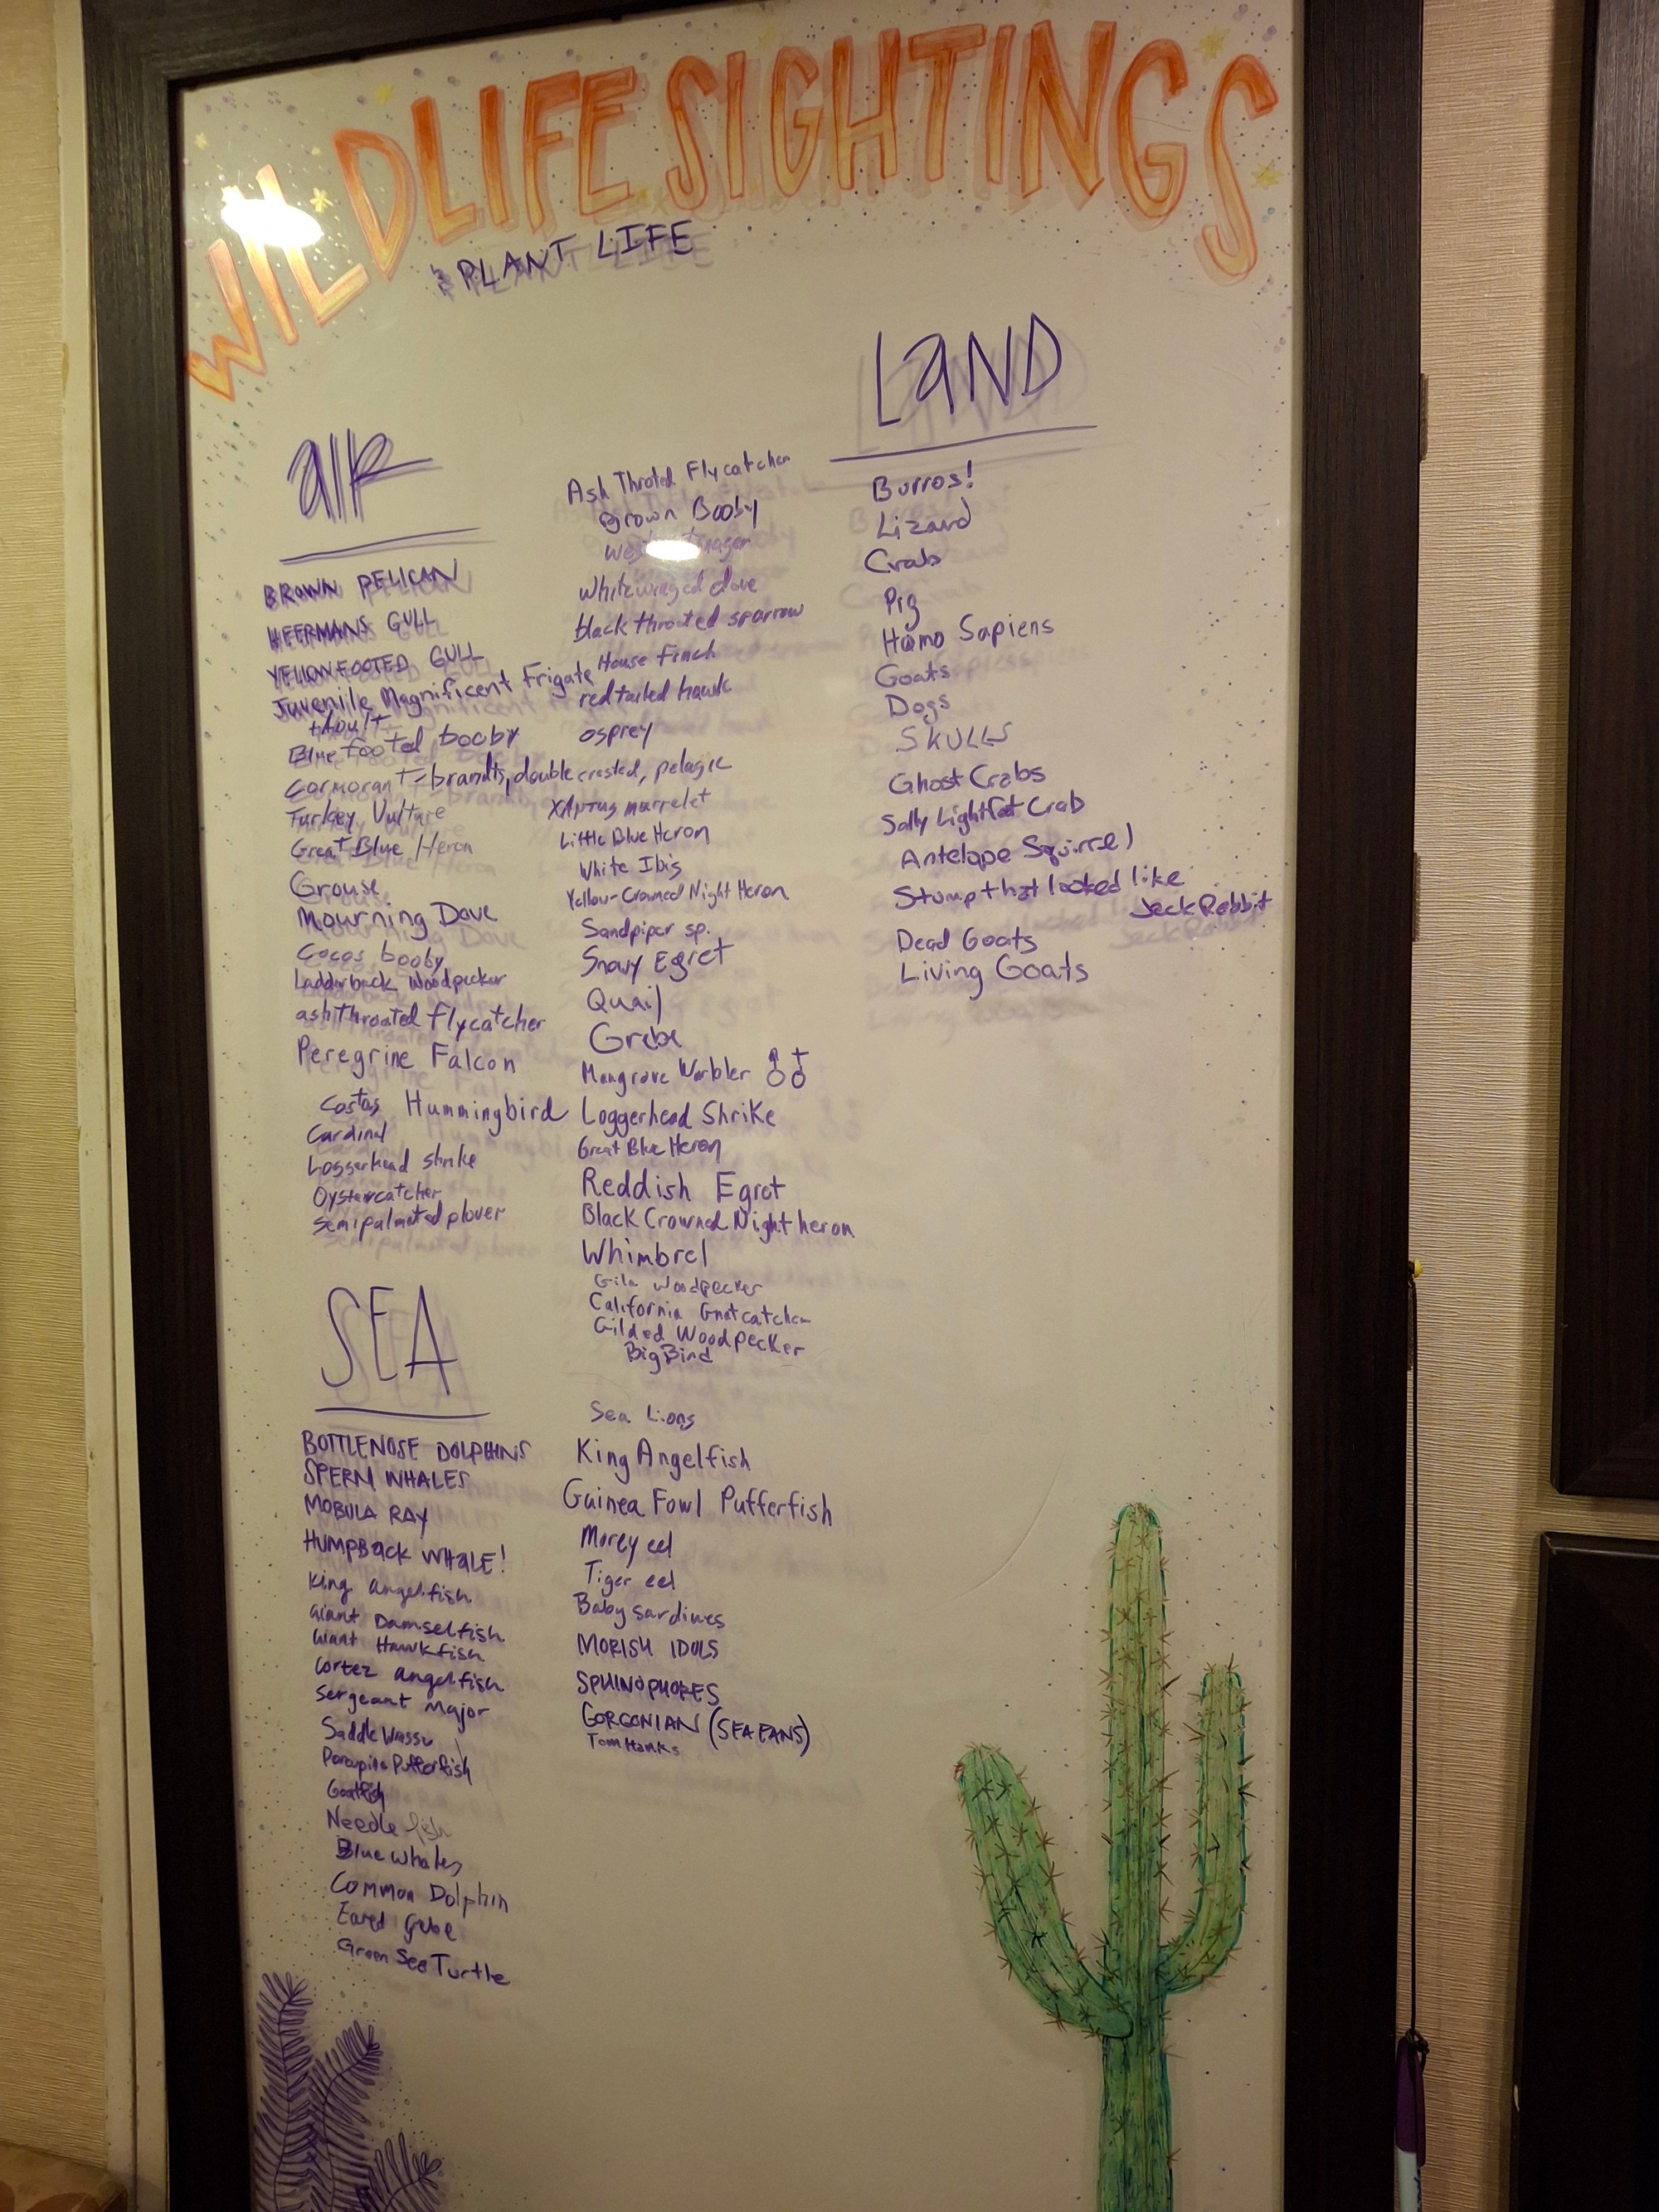 WILDLIFE SIGHTINGS
& PLANT LIFE
AIR
BROWN PELICAN
HEERMANS GULL
YELLOWFOOTED GULL
Juvenile Magnificent Frigate
+Adult
Blue footed booby
Cormorant = brandts, double crested, pelagic
Turkey Vulture
Great Blue Heron
Grouse
Mourning Dove
Cocos booby
Ladderback Woodpecker
ashthroated flycatcher
Peregrine Falcon
Costas Hummingbird
Cardinal
Loggerhead shrike
Oystercatcher
semipalmated plover
Ash Throted Flycatcher
Brown Booby
White winged dove
black throated sparrow
House Finch
red tailed hawk
osprey
XAntus murrelet
Little Blue Heron
White Ibis
Yellow-Crowned Night Heron
Sandpiper sp.
Snowy Egret
Quail
Grebe
Mangrove Warbler ♂♀
Loggerhead Shrike
Great Blue Heron
Reddish Egret
Black Crowned Night heron
Whimbrel
Gila Woodpecker
California Gnatcatcher
Gilded Woodpecker
Big Bird
LAND
Burros!
Lizard
Crab
Pig
Homo Sapiens
Goats
Dogs
SKULLS
Ghost Crabs
Sally Lightfoot Crab
Antelope Squirrel
Stump that looked like
Jack Rabbit
Dead Goats
Living Goats
SEA
BOTTLENOSE DOLPHINS
SPERM WHALES
MOBULA RAY
HUMPBACK WHALE!
King angelfish
Giant Damselfish
Giant Hawkfish
Cortez angelfish
Sergeant Major
Saddle
Porcupine Pufferfish
Goatfish
Needle fish
Blue whales
Common Dolphin
Eared Grebe
Green Sea Turtle
Sea Lions
King Angelfish
Guinea Fowl Pufferfish
Morey eel
Tiger eel
Baby sardines
MORISH IDOLS
GORGONIAN (SEA FANS)
Tom Hanks